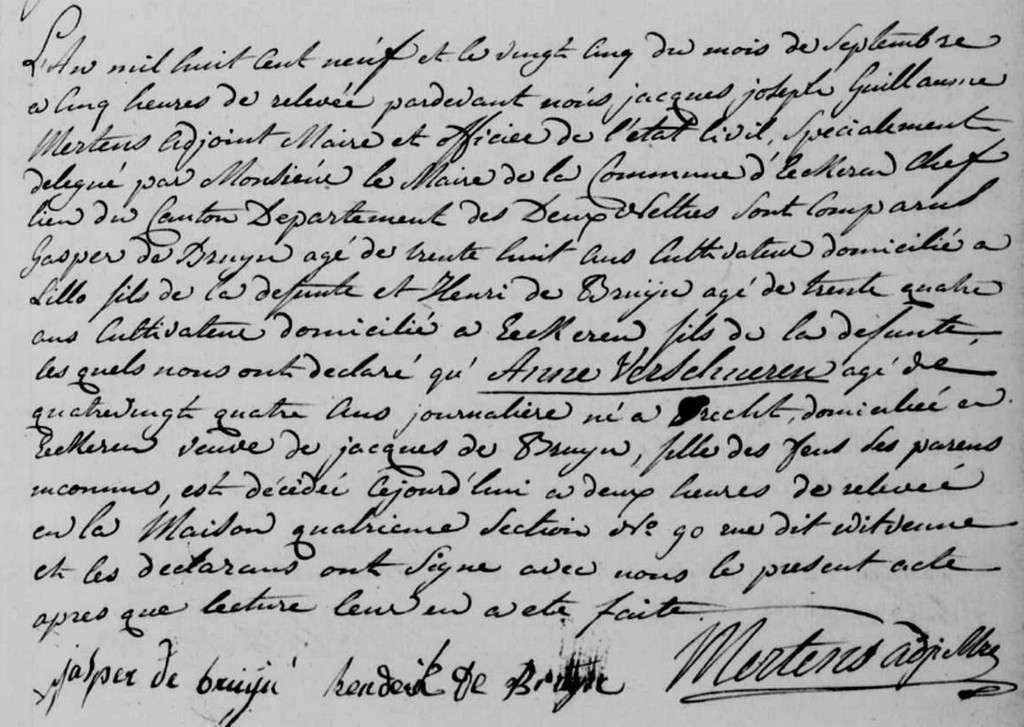 L'An mil huit cent neuf et le vingt cinq du mois de Septembre
a cinq heures de relevée pardevant nous jacques joseph Guillaume
Mertens adjoint Maire et officier de l'état civil, specialement
delegué par Monsieur le Maire de la Commune d'Eeckeren chef
lieu du Canton Departement des Deux Nethes sont comparus
Gasper de Bruyn agé de trente huit ans Cultivateur domicilié a
Lillo fils de la defunte et Henri de Bruyn agé de trente quatre
ans Cultivateur domicilié a Eeckeren fils de la defunte,
les quels nous ont declaré qu' Anne Verschueren agé de
quatrevingt quatre ans journaliere né a Brecht, domiciliée a
Eeckeren veuve de jacques de Bruyn, fille des feus ses parens
inconnus, est décédée cejourd'hui a deux heures de relevée
en la Maison quatrieme Section No. 90 rue dit witvenne
et les declarans ont Signe avec nous le present acte
apres que lecture leur en a eté faite
jasper de bruijn hendrik De Bruyn Mertens adj. Mre